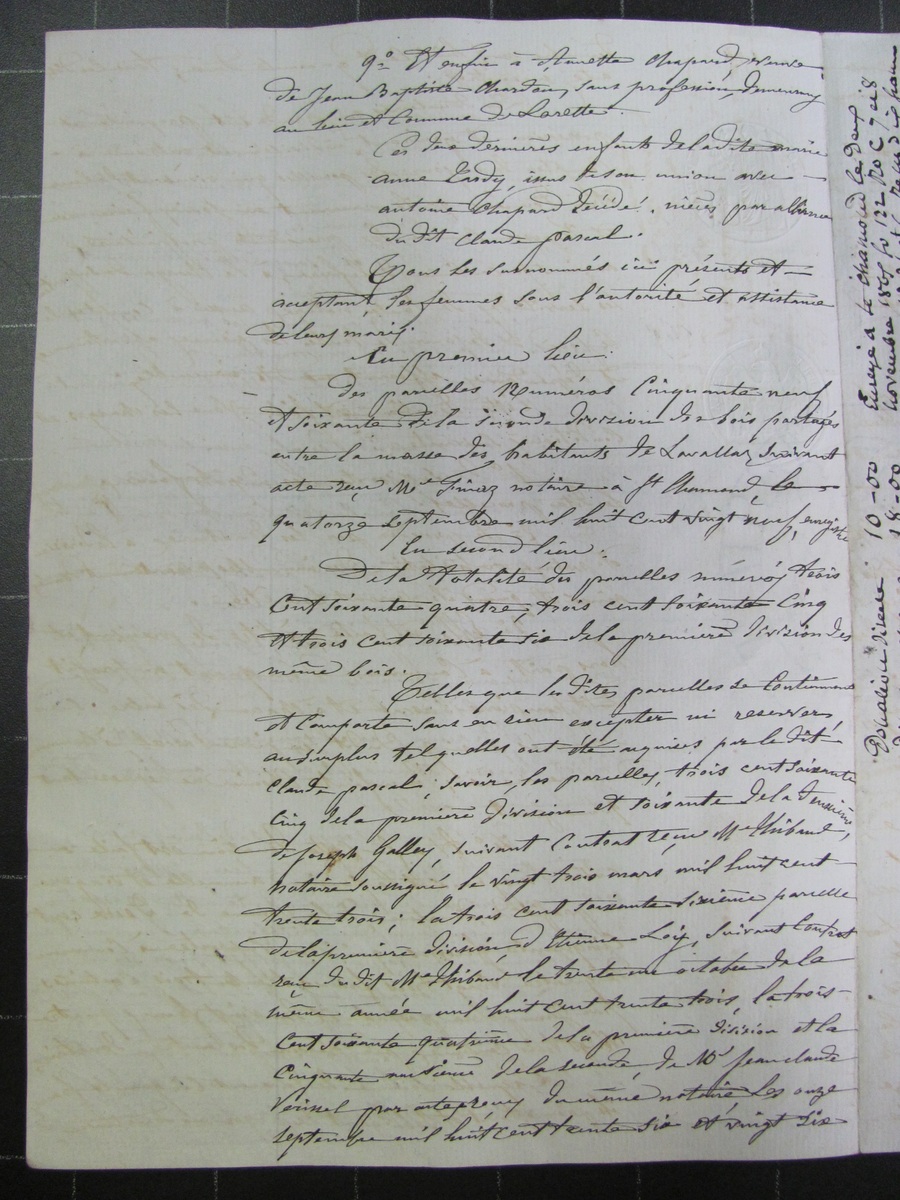 9° Et enfin à Annette Chapard, veuve
de Jean Baptiste Chardon, sans profession, demeurant
au lieu et Commune de Lorette.
Ces deux dernières enfants de la dite marie
anne Tardy, issus de son union avec
antoine Chapard décédé, nièces par alliance
du dit Claude pascal.
Tous les surnommés ici présents et
acceptant, les femmes sous l'autorité et assistance
de leurs maris.
En premier lieu.
Des parcelles Numéros Cinquante neuf
et soixante de la seconde division des bois partagés
entre la masse des habitants de Lavallaz, suivant
acte reçu Me notaire à St Chamond, le
quatorze septembre mil huit cent vingt neuf, enregistré
En second lieu.
De la totalité des parcelles numéros trois
Cent soixante quatre, trois cent soixante Cinq
et trois cent soixante six de la première division des
même bois.
Telles que les dites parcelles se Contiennent
et Comporte sans en rien excepter ni reserver,
au surplus tel quelles ont été acquises par le dit
Claude pascal, savoir, les parcelles, trois cent soixante
Cinq de la première division et soixante de la deuxième,
de Joseph Galley, suivant Contrat reçu Me Thibaud,
notaire soussigné le vingt trois mars mil huit cent
trente trois; la trois cent soixante sixième parcelle
de la première division, d'Etienne Loÿ, suivant Contrat
reçu du dit Me Thibaud le trente un octobre de la
même année mil huit cent trente trois, la trois
Cent soixante quatrième de la première division et la
Cinquante neuvième de la seconde, de Mr Jean claude
par actes reçus du même notaire les onze
septembre mil huit cent trente six et vingt six
Enregé à St Chamond le Deux
novembre 1865 fo 122 Ro C 7 et 8
10-00
18-00